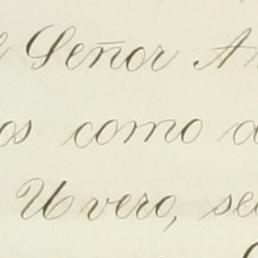 Señor An
os como d
Uvero, se